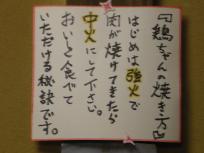 『鶏ちゃんの焼き方』
はじめは強火で
肉が焼けてきたら
中火にして下さい。
おいしく食べて
いただける秘訣です。